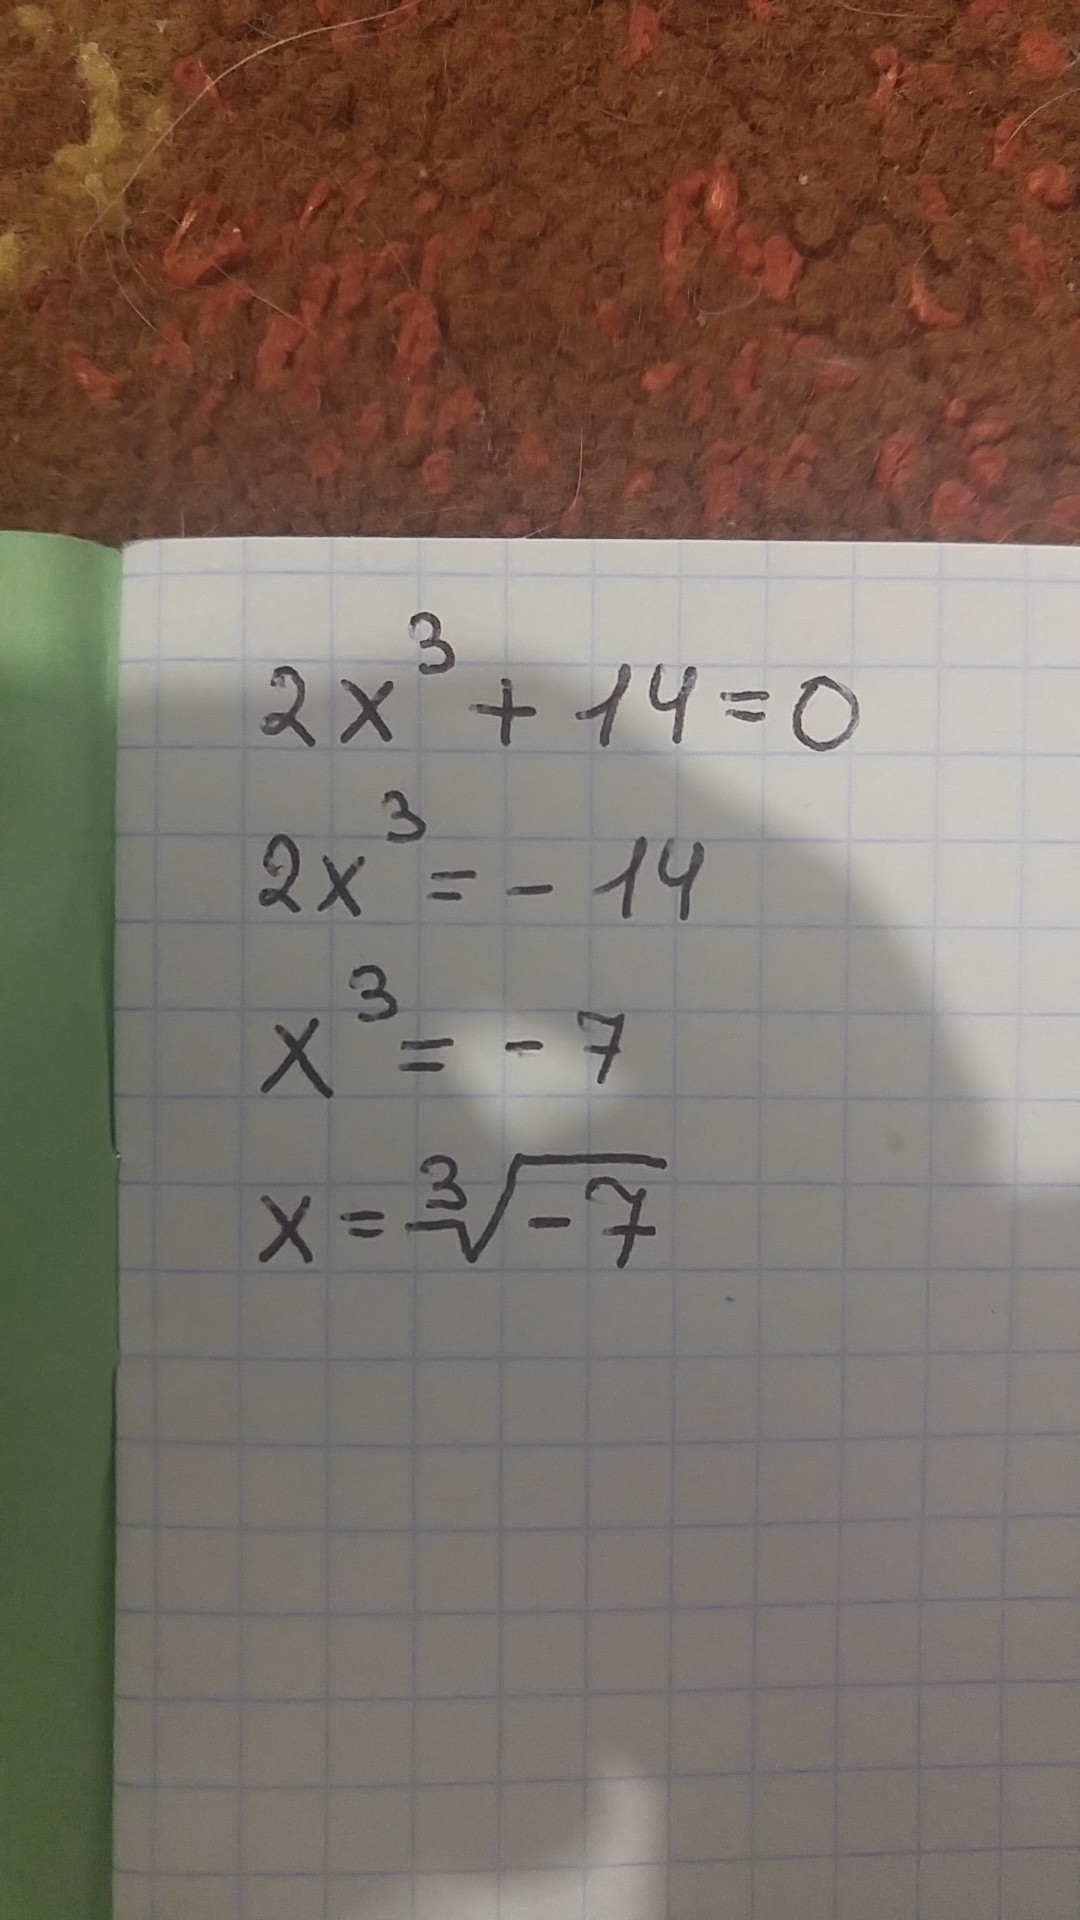 2x³ + 14 = 0
2x³ = - 14
x³ = - 7
x = ∛-7